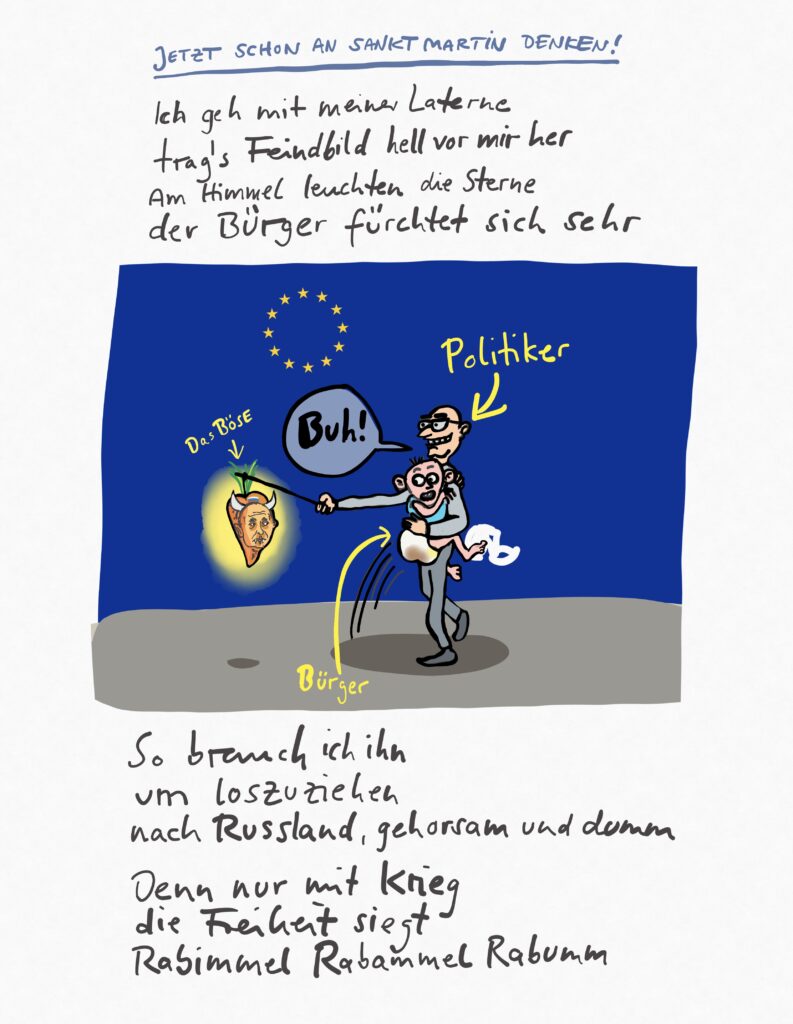 JETZT SCHON AN SANKT MARTIN DENKEN!
Ich geh mit meiner Laterne
trag's Feindbild hell vor mir her
Am Himmel leuchten die Sterne
der Bürger fürchtet sich sehr
Politiker
Buh!
Das BÖSE
Bürger
So brauch ich ihn
um loszuziehen
nach Russland, gehorsam und dumm
Denn nur mit Krieg
die Freiheit siegt
Rabimmel Rabammel Rabumm